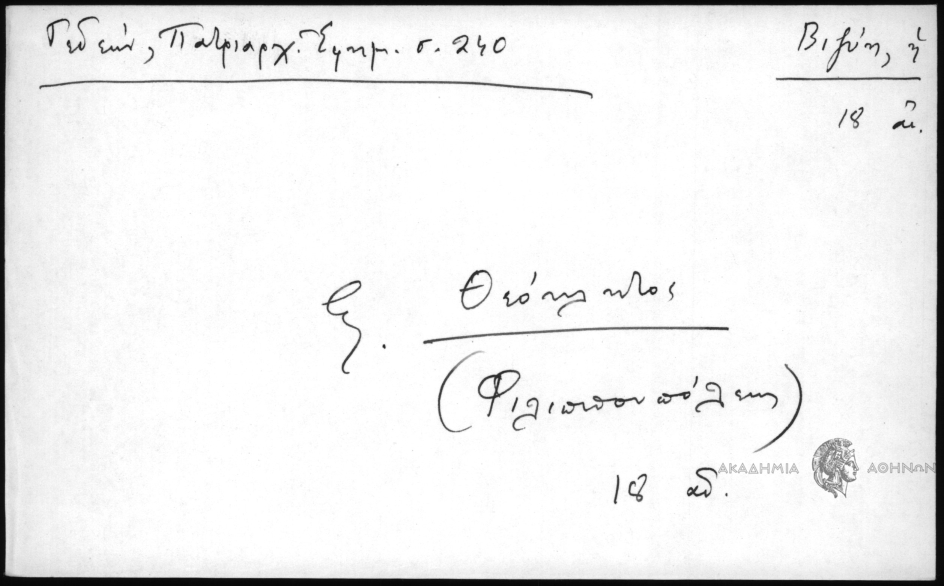 Γεδεών, Πατριαρχ. Ἐφημ. σ. 240
Βιζύη, ἡ
18 αἰ.
Θεόκλητος
(Φιλιππουπόλεως)
18 αἰ.
ΑΚΑΔΗΜΙΑ ΑΘΗΝΩΝ